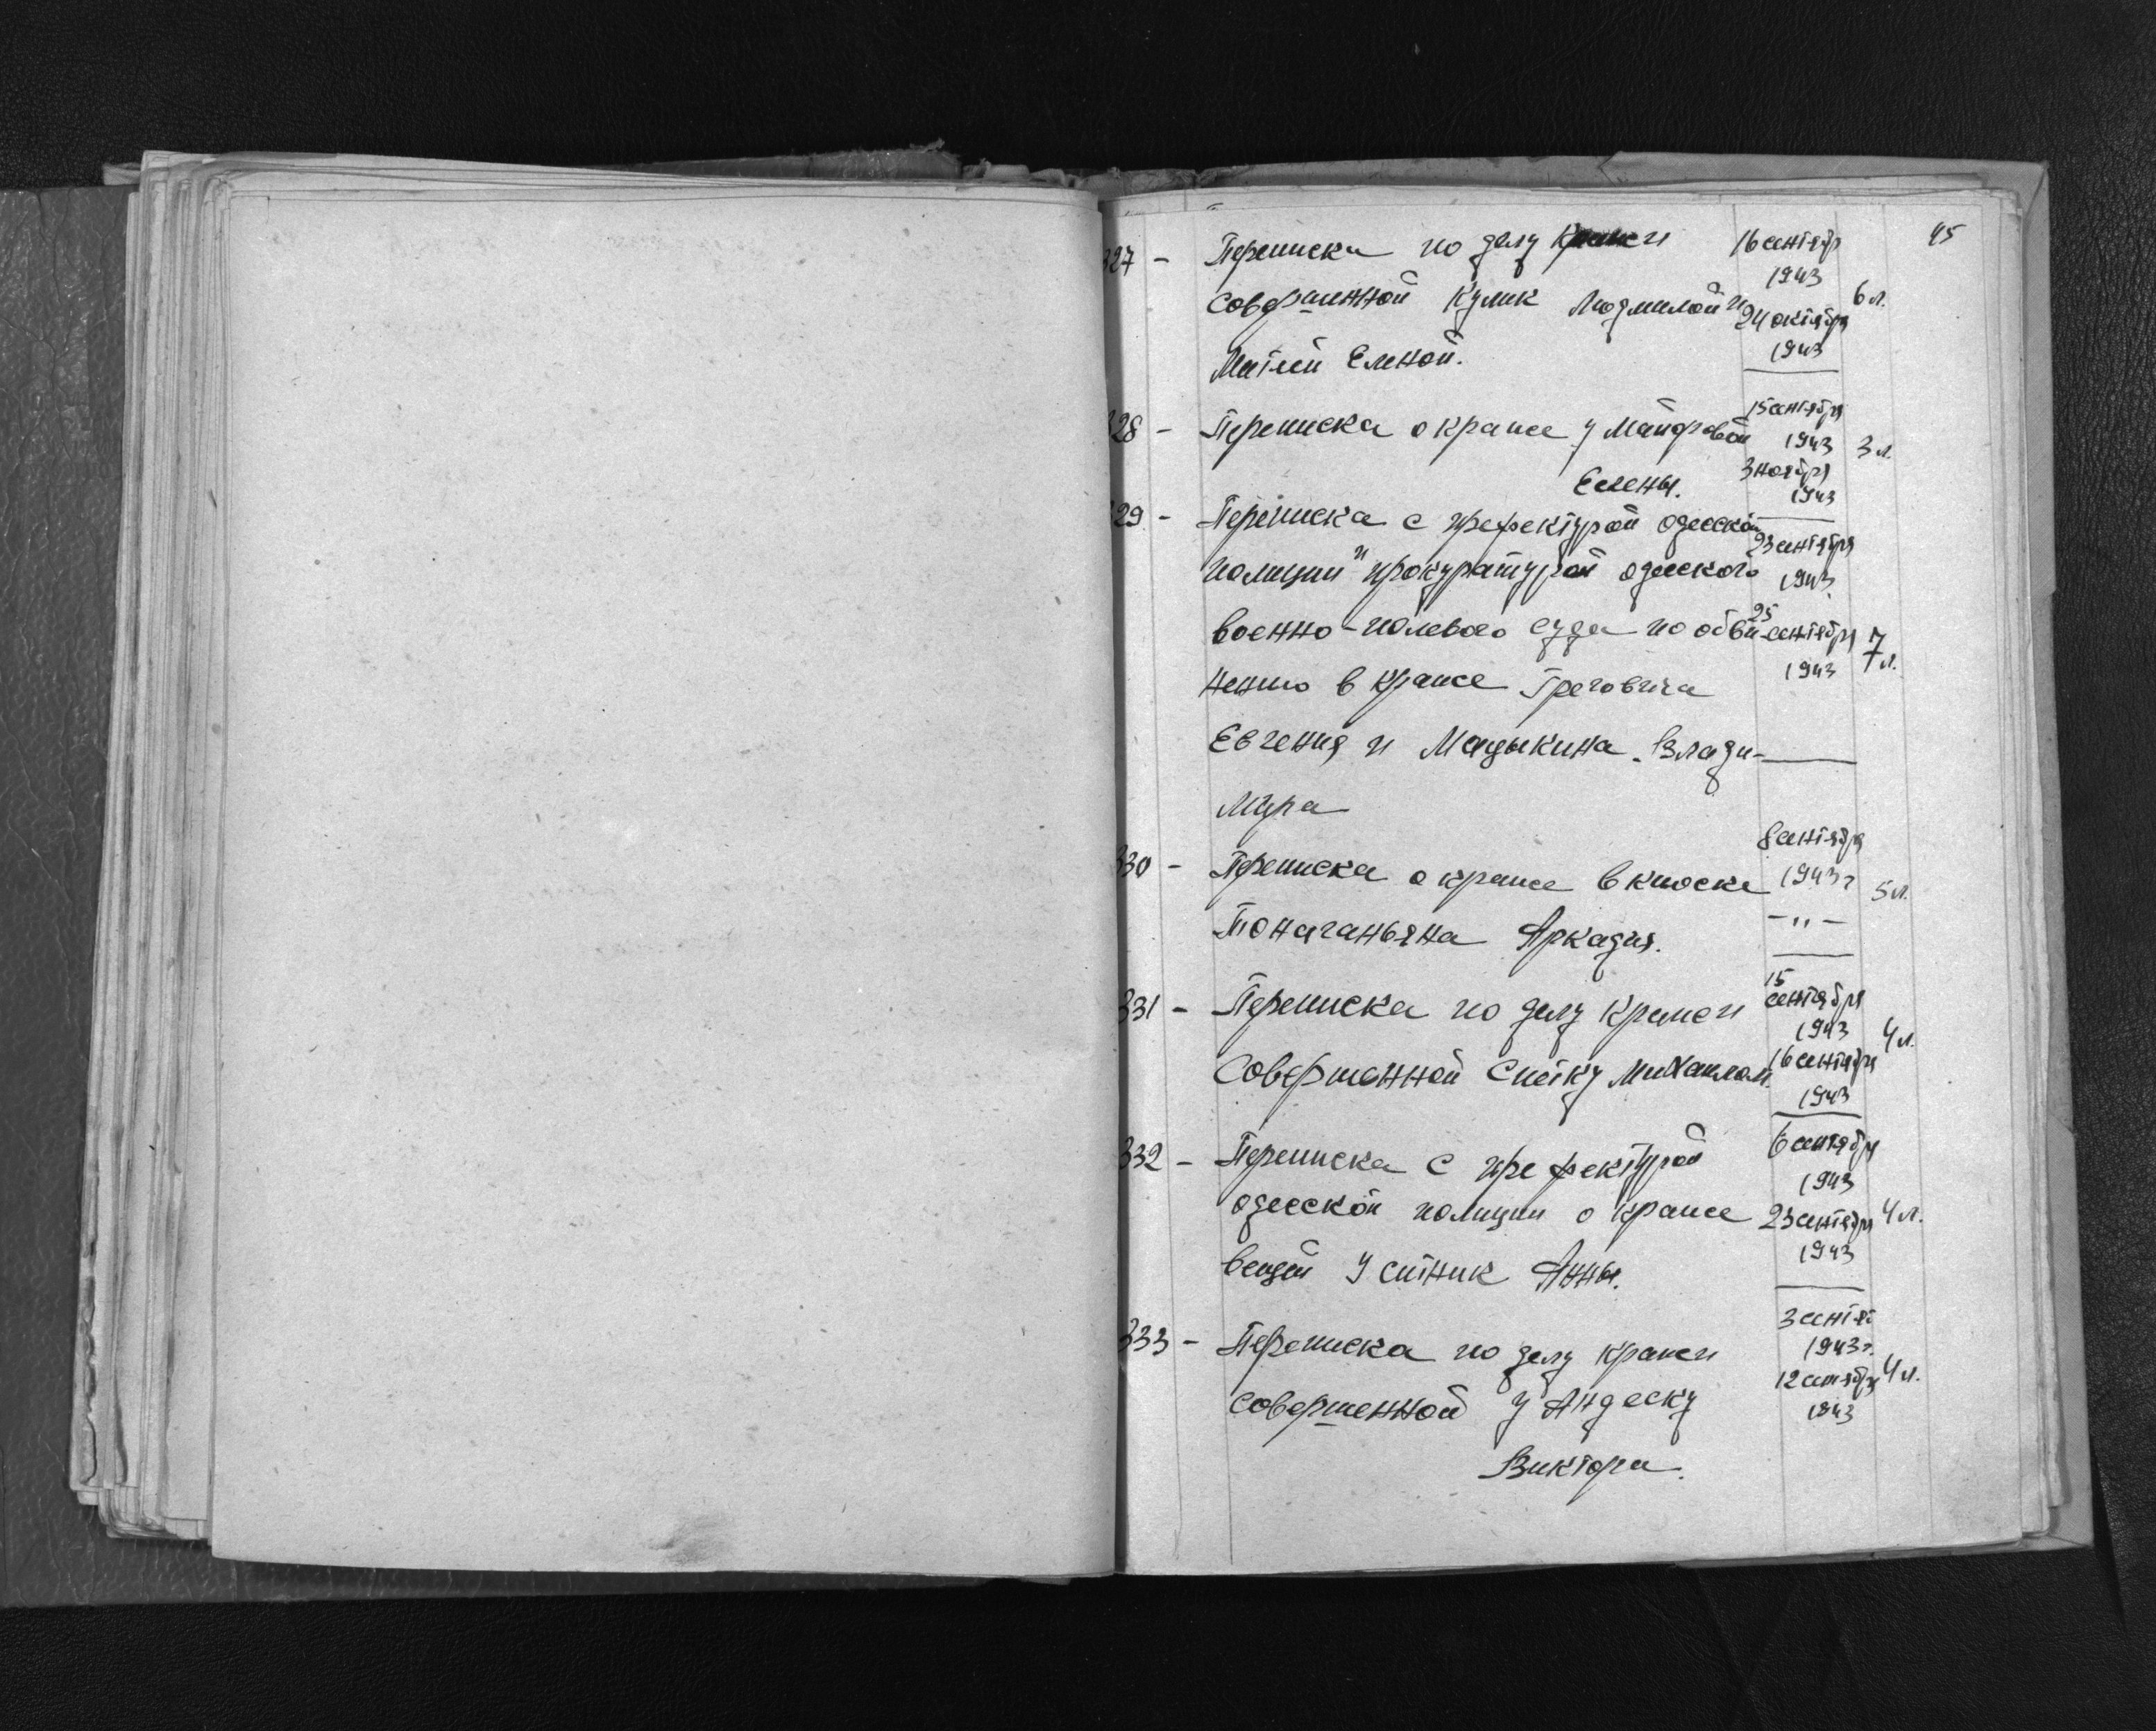 45
327 - Переписка по делу кражи 16 сентябр
1943
совершенной Кулик Людмилой и 6 л.
24 октября
Матей Еленой. 1943
328 - Переписка о краже у Майоровой 15 сентября
1943 3 л.
Елены. 3 ноября
1943
329 - Переписка с префектурой одесской
23 сентября
полиции и прокуратурой одесского 1943
военно-полевого суда по обви- 25 сентября 7 л.
нению в краже Греговича 1943
Евгения и Мадыкина Влади-
мира
8 сентября
330 - Переписка о краже в киоске 1943 г 5 л.
Тонаганьяна Аркадия. -"-
331 - Переписка по делу кражи 15 сентября
1943 4 л.
Совершенной Снетку Михаилом. 16 сентября
1943
332 - Переписка с префектурой 6 сентября
1943
одесской полиции о краже 23 сентября 4 л.
вещей у Спатник Анны. 1943
333 - Переписка по делу кражи 3 сентяб
1943 г.
совершенной у Андеску 12 сентября 4 л.
1943
Виктора.